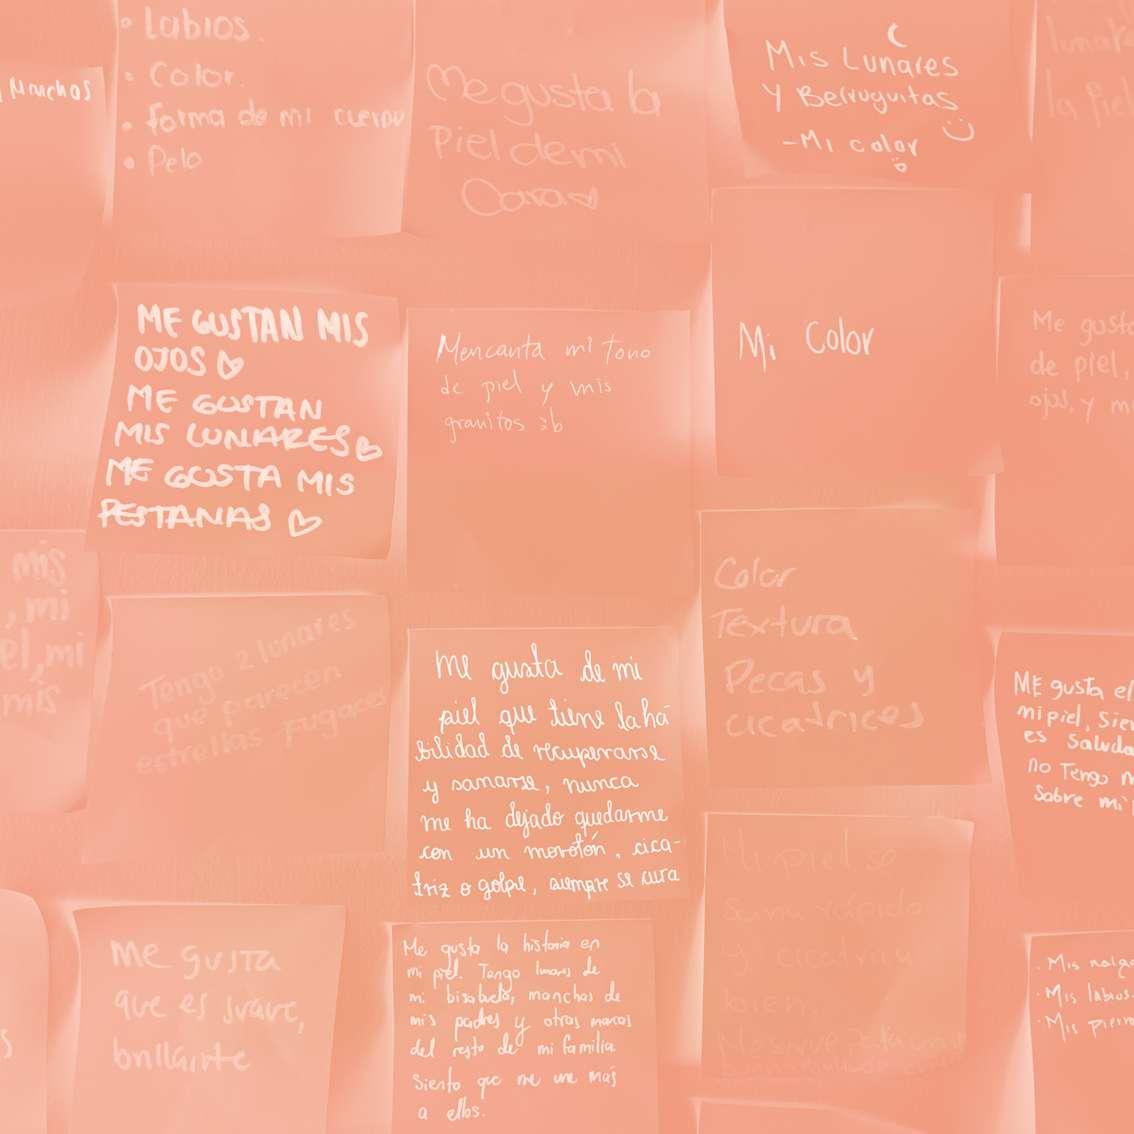 Manchas
• Labios.
• Color.
• forma de mi cuerpo
• Pelo
Me gusta la
Piel de mi
Cara
Mis Lunares
y Berruguitas
-Mi color
lunare
la piel
ME GUSTAN MIS
OJOS ♡
ME GUSTAN
MIS LUNARES ♡
ME GUSTA MIS
PESTAÑAS ♡
Mencanta mi tono
de piel y mis
granitos :b
Mi Color
Me gusta
de piel,
ojos, y m
mis
, mi
el, mi
mis
Tengo 2 lunares
que parecen
estrellas fugaces
Me gusta de mi
piel que tiene la ha
bilidad de recuperarse
y sanarse, nunca
me ha dejado quedarme
con un moretón, cica-
triz o golpe, siempre se cura
Color
Textura
Pecas y
cicatrices
ME gusta el
mi piel, sien
es saluda
no Tengo m
sobre mi p
me gusta
que es suave,
brillante
Me gusta la historia en
mi piel. Tengo lunares de
mi bisabuelo, manchas de
mis padres y otras marcas
del resto de mi familia
Siento que me une más
a ellos.
Mi piel se
sana rápido
y cicatriza
bien,
. Mis nalgas
. Mis labios.
. Mis pierna